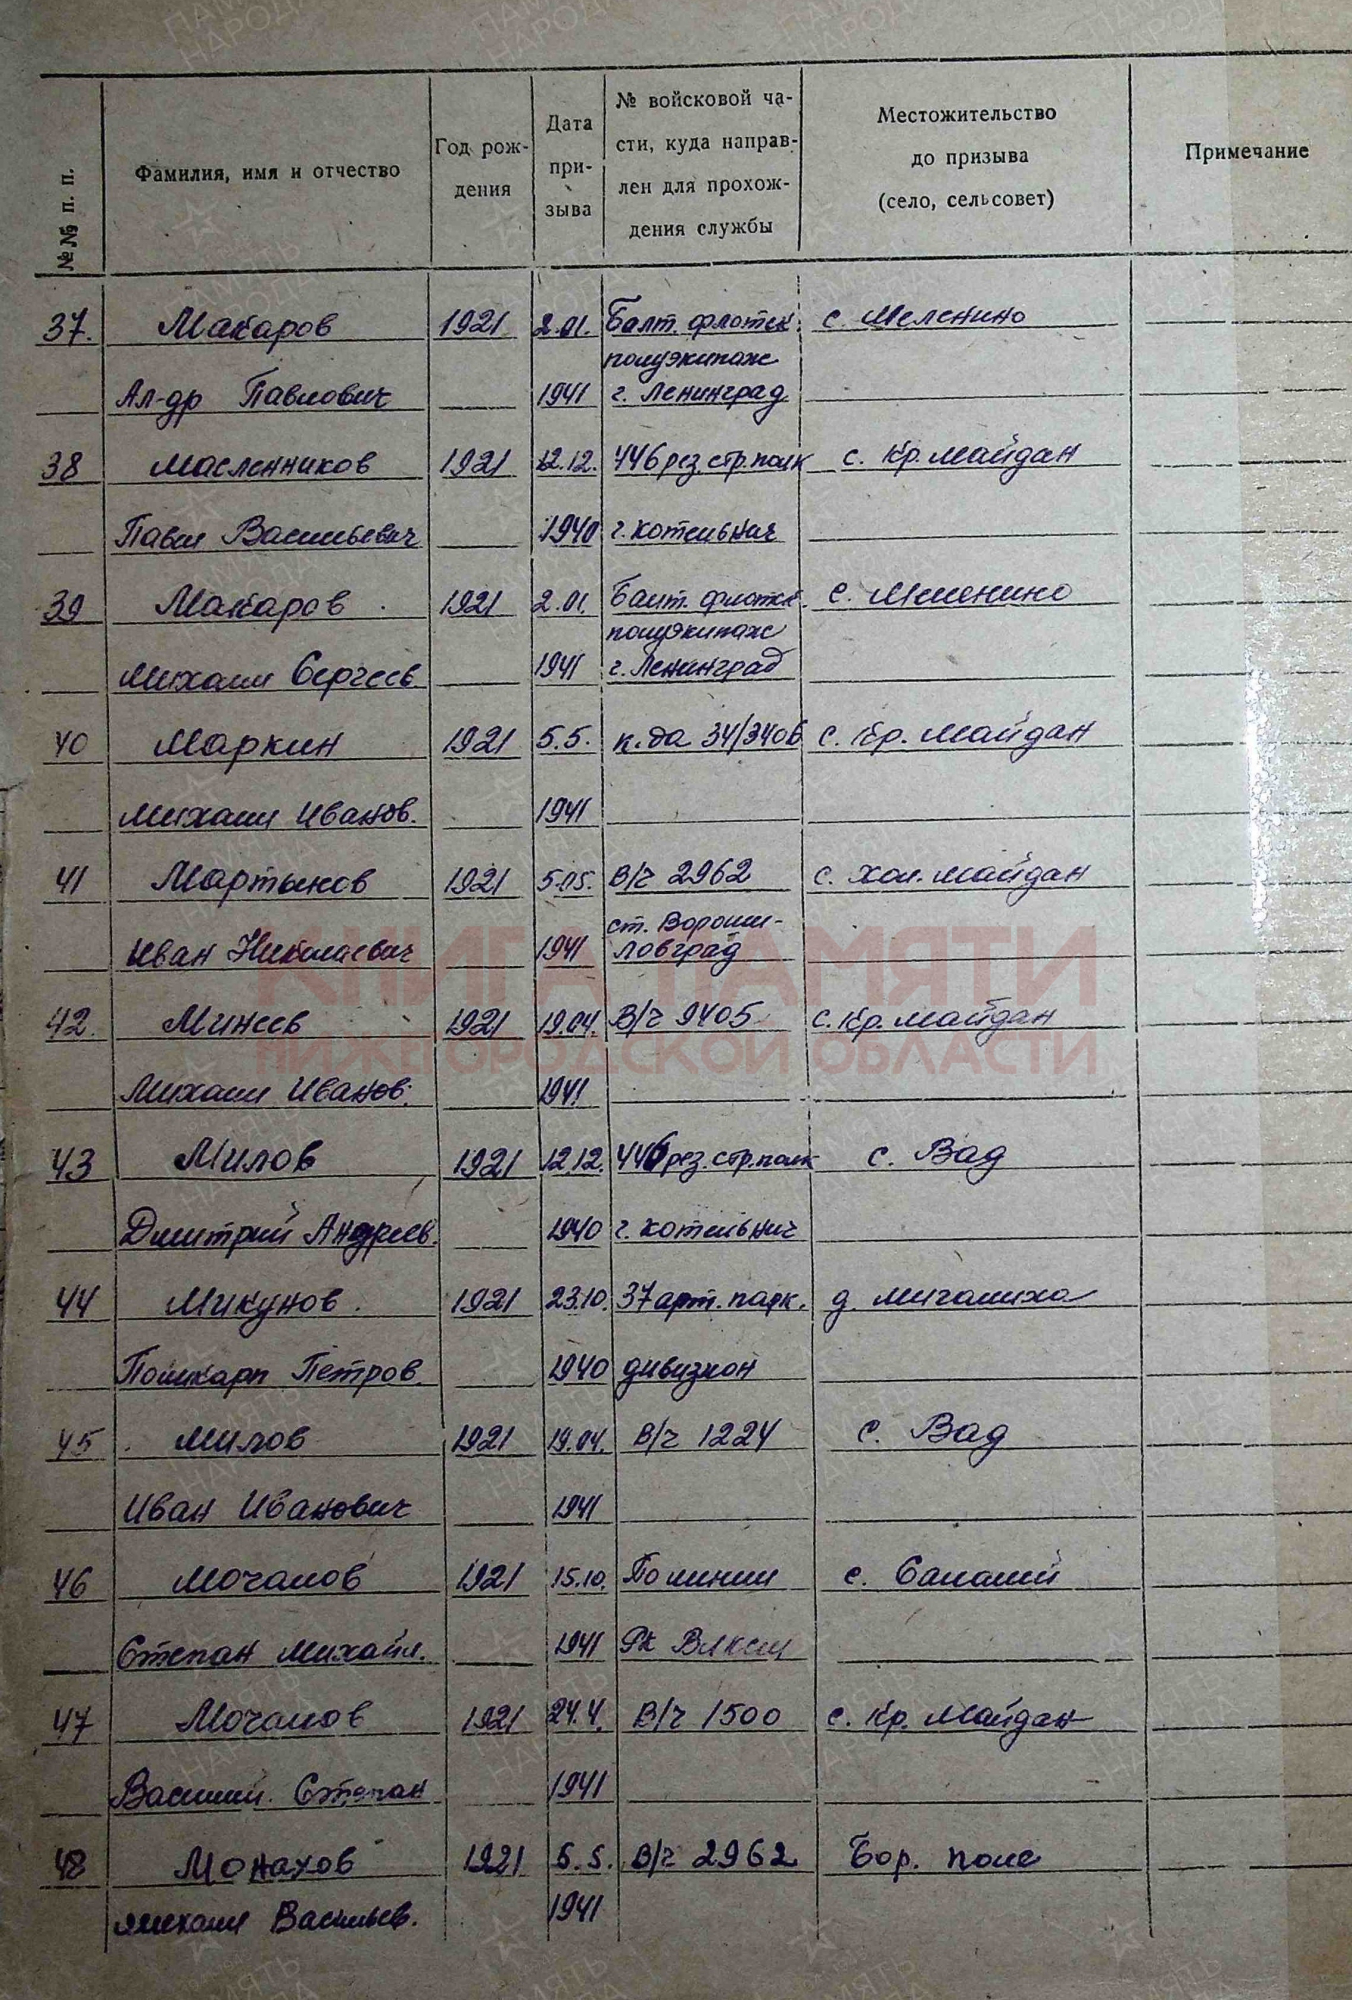 №№ п. п.
Фамилия, имя и отчество
Год рож-
дения
Дата
при-
зыва
№ войсковой ча-
сти, куда направ-
лен для прохож-
дения службы
Местожительство
до призыва
(село, сельсовет)
Примечание
37. Макаров 1921 2.01. Балт. флотск. с. Меленино
полуэкипаж
Ал-др Павлович 1941 г. Ленинград
38 Масленников 1921 12.12. 446 рез. стр. полк с. Кр. Майдан
Павел Васильевич 1940 г. Котельнич
39 Макаров 1921 2.01. Балт. флотск. с. Меленино
полуэкипаж
Михаил Сергеев. 1941 г. Ленинград
40 Маркин 1921 5.5. к-да 34/340в с. Кр. Майдан
Михаил Иванов. 1941
41 Мартынов 1921 5.05. В/ч 2962 с. Хол. Майдан
ст. Вороши-
Иван Николаевич 1941 ловград
42. Минеев 1921 19.04. В/ч 9405 с. Кр. Майдан
Михаил Иванов. 1941
43 Милов 1921 12.12. 446 рез. стр. полк с. Вад
Дмитрий Андреев. 1940 г. Котельнич
44 Микунов. 1921 23.10. 37 арт. парк. д. Мигалиха
Поликарп Петров. 1940 дивизион
45 Милов 1921 19.04. В/ч 1224 с. Вад
Иван Иванович 1941
46 Мочалов 1921 15.10. По линии с. Салалей
Степан Михайл. 1941 РК ВЛКСМ
47 Мочалов 1921 24.4. В/ч 1500 с. Кр. Майдан
Василий. Степан 1941
48 Монахов 1921 5.5. В/ч 2962 Бор. поле
Михаил Васильев. 1941
КНИГА ПАМЯТИ
НИЖЕГОРОДСКОЙ ОБЛАСТИ
ПАМЯТЬ
НАРОДА